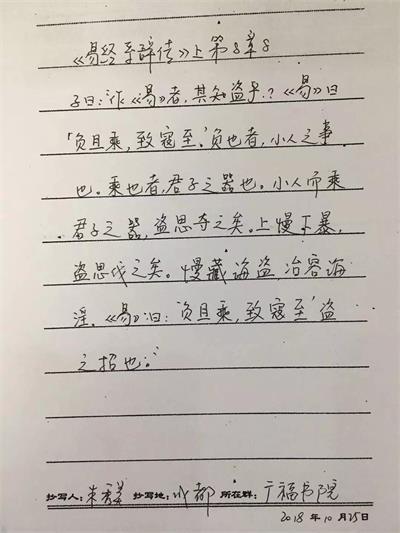 《易经系辞传》上第8章8
子曰:“作《易》者,其知盗乎?《易》曰
‘负且乘,致寇至。’负也者,小人之事
也。乘也者,君子之器也。小人而乘
君子之器,盗思夺之矣。上慢下暴,
盗思伐之矣。慢藏诲盗,冶容诲
淫。《易》曰:‘负且乘,致寇至’盗
之招也。”
抄写人:朱 抄写地:成都 所在群:广福书院
2018年10月25日